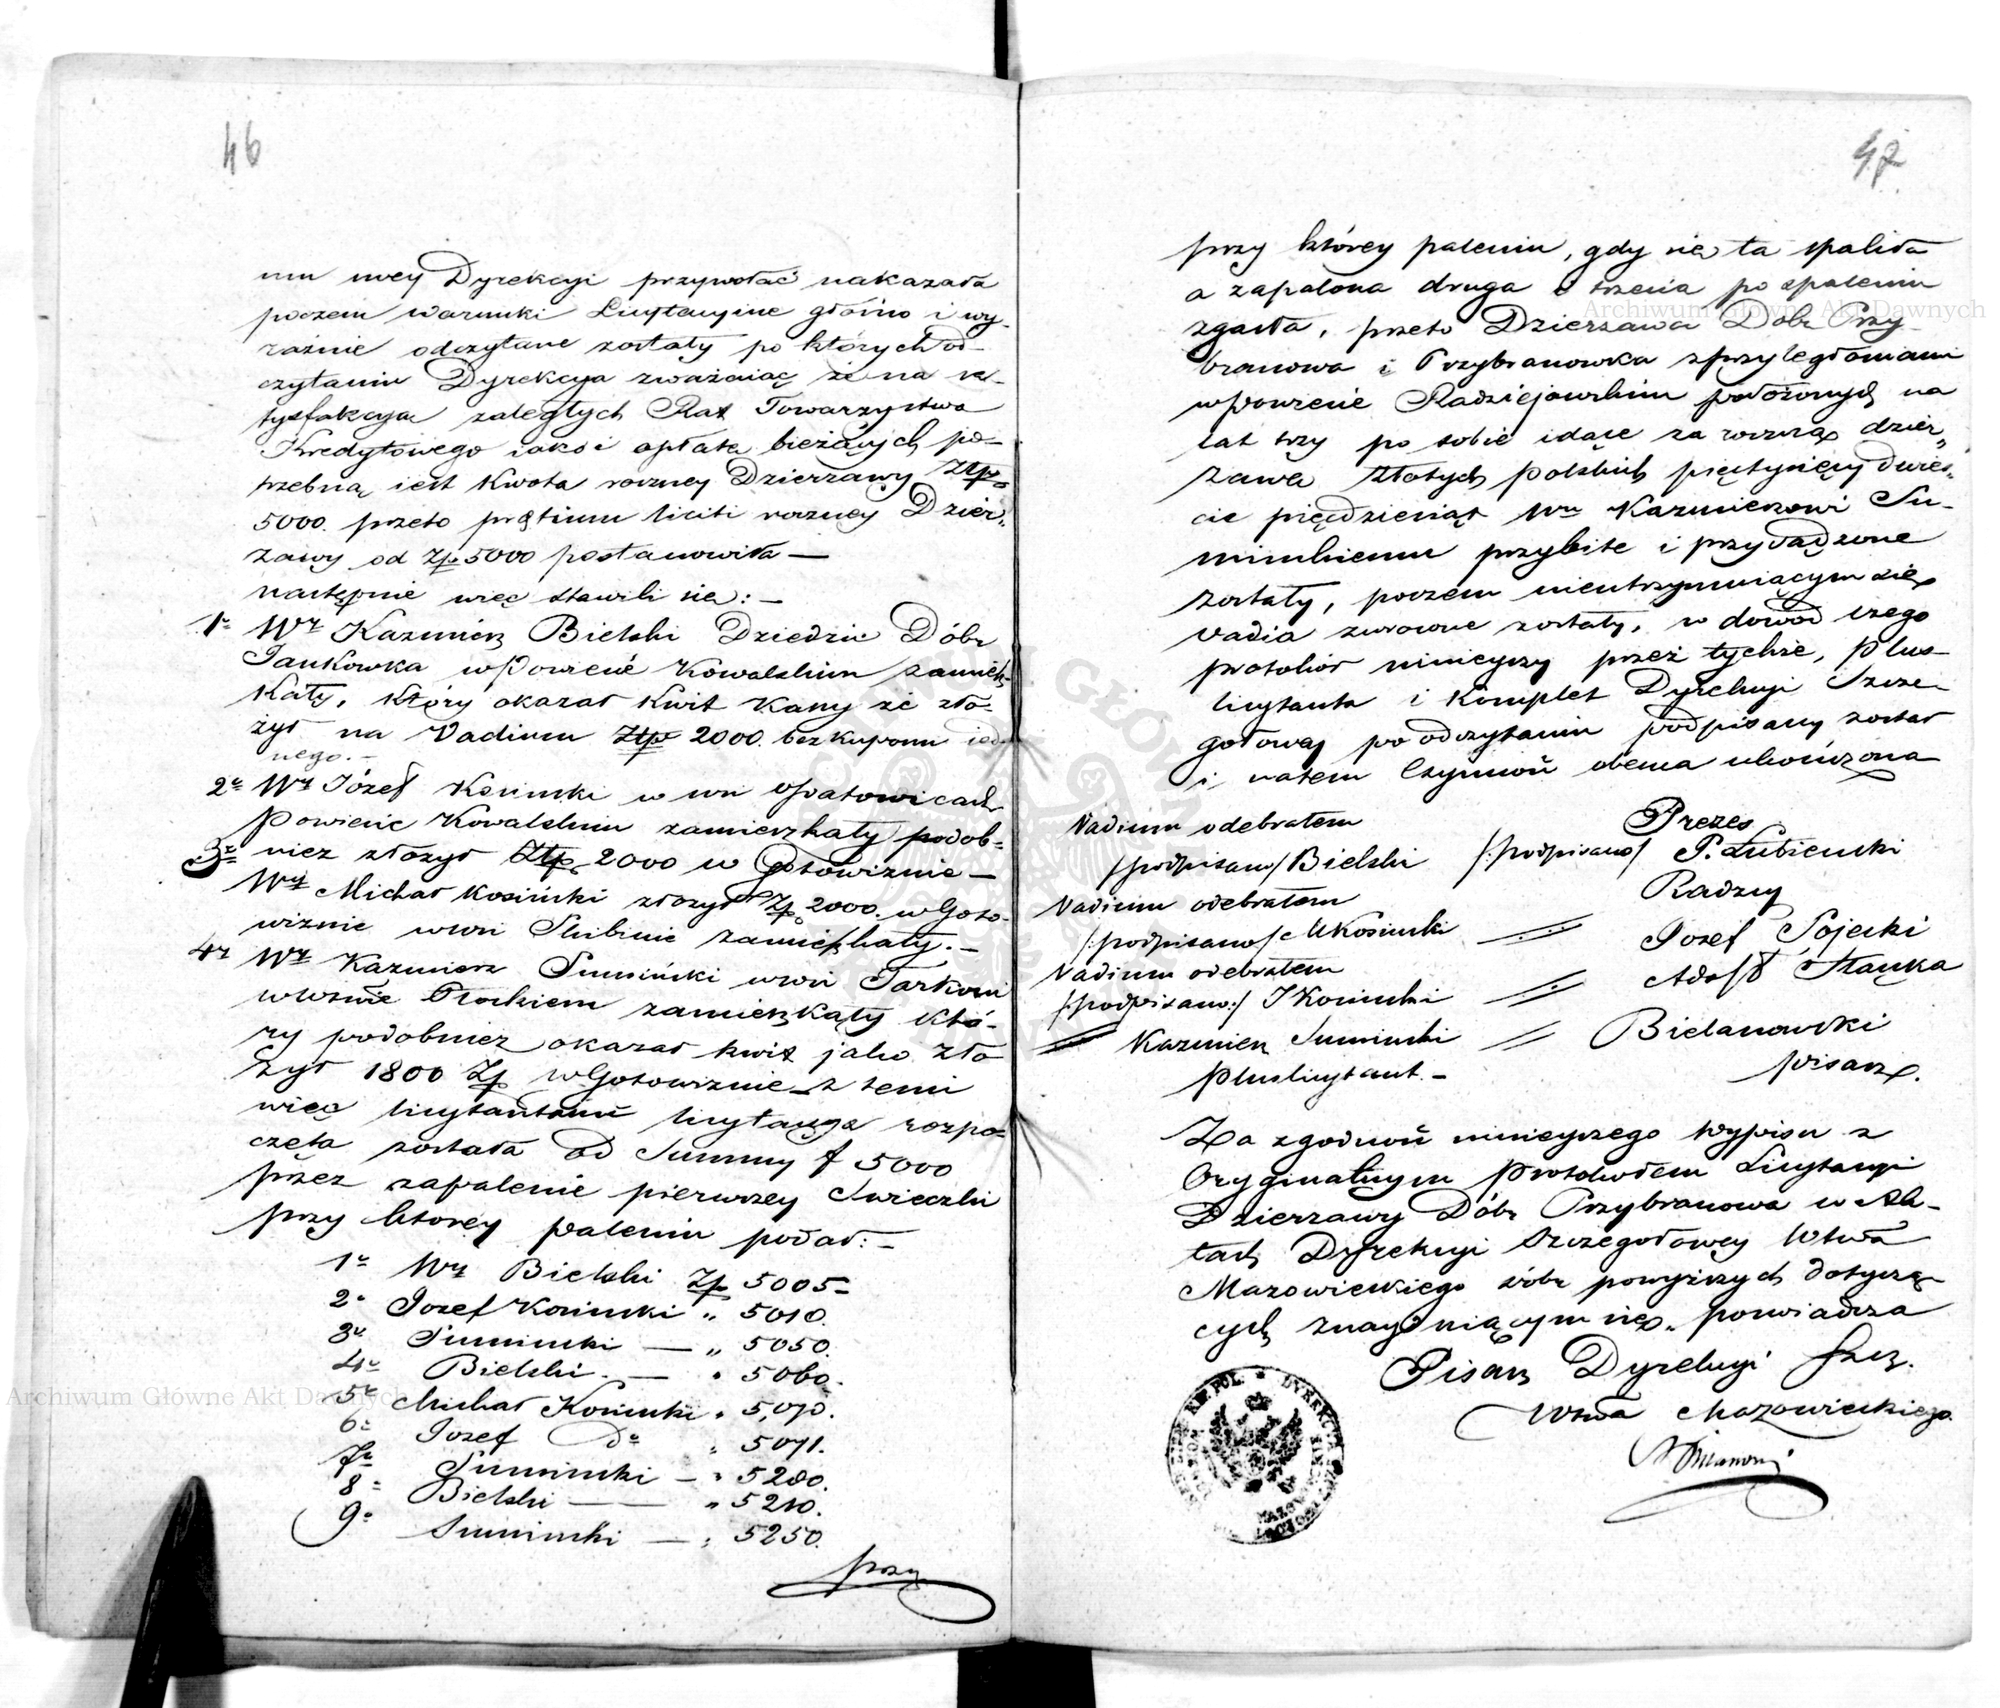 46
mu wey Dyrekcyi przywołać nakazała
poczem warunki Licytacyine głośno i wy-
raźnie odczytane zostały po których od-
czytaniu Dyrekcya zważaiąc że na sa-
tysfakcyą zaległych Rat Towarzystwa
Kredytowego iako i opłatę bieżących po-
trzebną iest Kwota roczney Dzierzawy Złp
5000. przeto prætium liciti roczney Dzier-
zawy od Zp 5000 postanowiła —
następnie więc stawili się: —
1o Wy Kazimierz Bielski Dziedzic Dóbr
Jankowka w Powiecie Kowalskim zamiesz-
kały, który okazał Kwit Kassy że zło-
żył na Vadium Złp 2000. bez kuponu ied-
nego. —
2o Wy Józef Kosinski w wsi Opatowicach
Powiecie Kowalskim zamieszkały podob-
nież złożył Złp 2000 w Gotowiznie —
3o Wy Michał Kosiński złożył Zp 2000. w Goto-
wiznie w wsi Slubinie zamieszkały. —
4o Wy Kazmierz Sumiński w wsi Tarkowi
w Wztwie Płockiem zamieszkały któ-
ry podobnież okazał kwit jako zło
żył 1800 Zp w Gotowiznie — z temi
więc licytantami licytacya rozpo-
częta została od Summy f 5000
przez zapalenie pierwszey Swieczki
przy ktorey paleniu podał: —
1o Wy Bielski Zp 5005 —
2o Jozef Kosinski " 5010.
3o Suminski — " 5050.
4o Bielski. — " 5060.
5o Michał Kosinski " 5,070.
6o Jozef do " 5071.
7o Suminski — " 5200.
8o Bielski — " 5210.
9o Suminski — " 5250.
przy
47
przy którey paleniu, gdy się ta spaliła
a zapalona druga i trzecia po spaleniu
zgasła, przeto Dzierzawa Dóbr Przy-
branowa i Przybranowka z przyległosciami
w powiecie Radziejowskim położonych na
lat trzy po sobie idące za roczną dzier-
zawę Złotych Polskich pięć tysięcy dwieś-
cie pięćdziesiąt Wmu Kazmierzowi Su-
minskiemu przybite i przysądzone
zostały, poczem nieutrzymuiącym się
vadia zwrocone zostały, w dowód czego
protokół ninieyszy przez tychże, Plus-
licytanta i Komplet Dyrekcyi Szcze-
gołowey po odczytaniu podpisany został
i zatem Czynność obecna ukończona
Vadium odebrałem
/podpisano/ Bielski
Vadium odebrałem
/:podpisano/ M Kosinski
Vadium odebrałem
/:podpisano:/ J Kosinski
Kazmierz Suminski
Pluslicytant. —
Prezes
/:podpisano/ P. Łubienski
Radzcy
Jozef Sojecki
Adolf Stączka
Bielanowski
pisarz.
Za zgodność ninieyszego wypisu z
Oryginalnym Protokołem Licytacyi
Dzierzawy Dóbr Przybranowa w Ak-
tach Dyrekcyi Szczegołowey Wtwa
Mazowieckiego dóbr powyższych dotyczą-
cych znayduiącym się, poswiadcza
Pisarz Dyrekcyi Szcz.
Wtwa Mazowieckiego.
Archiwum Główne Akt Dawnych
Archiwum Główne Akt Dawnych